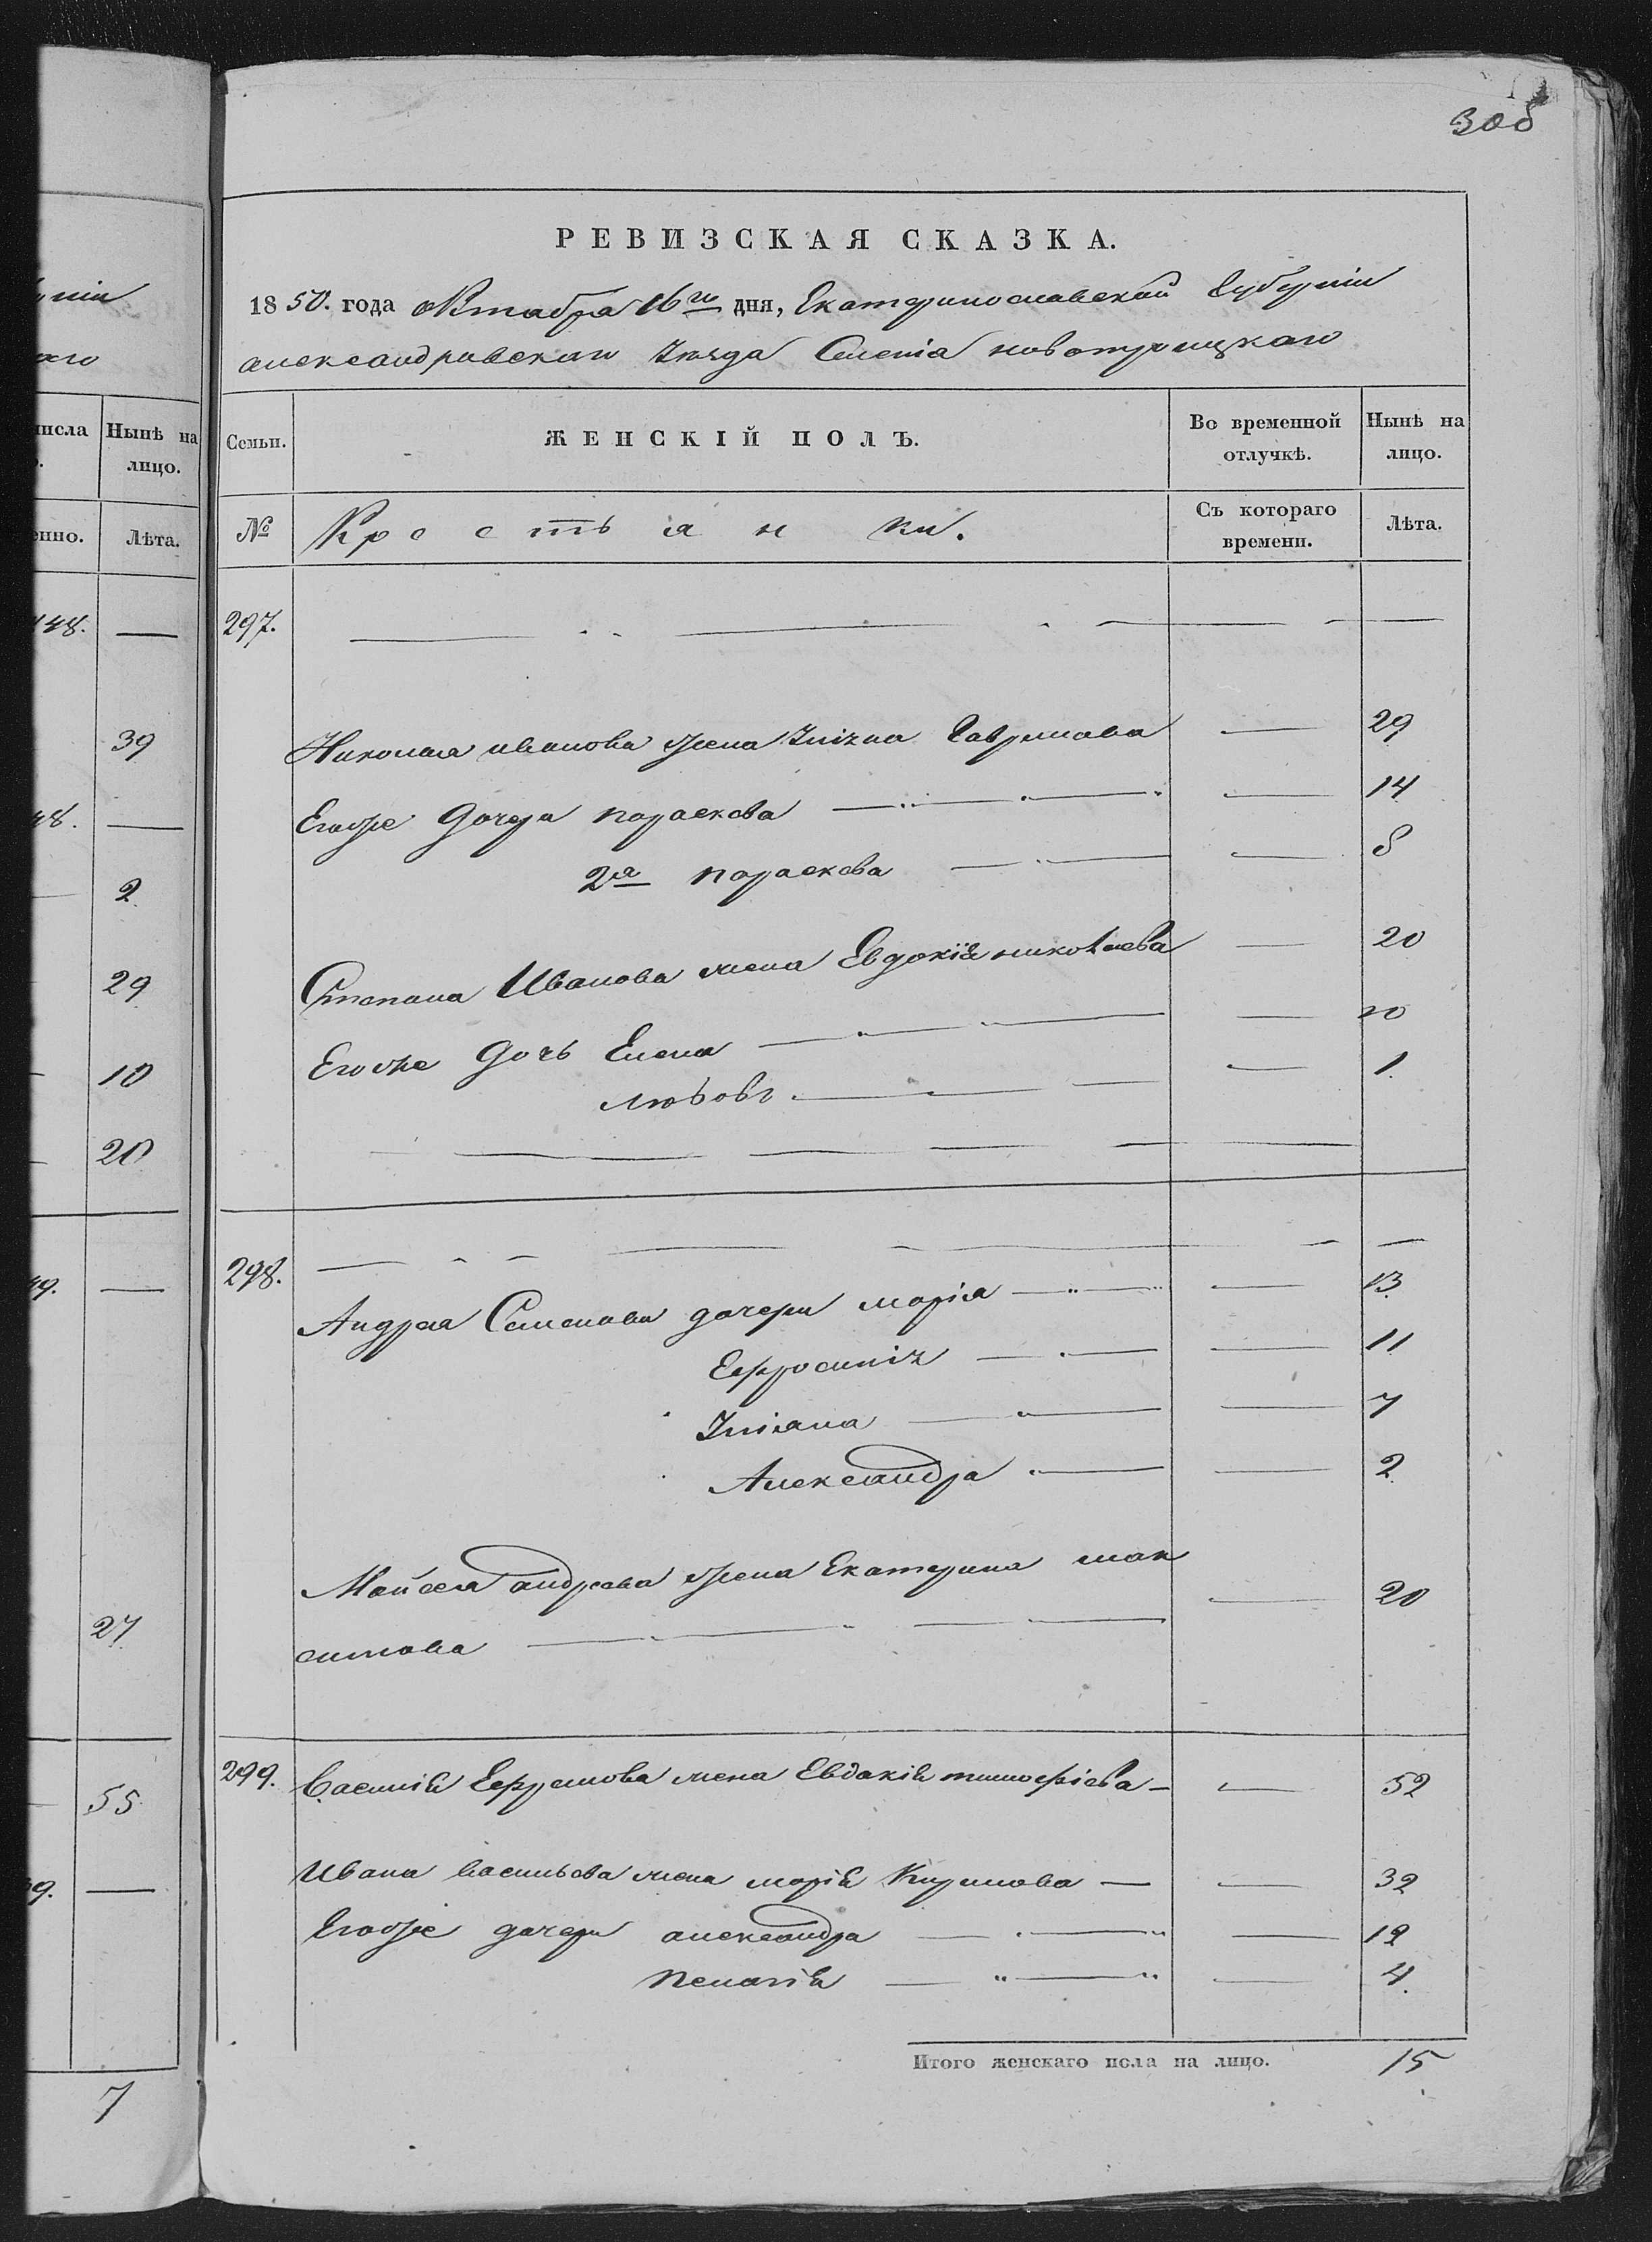 308
РЕВИЗСКАЯ СКАЗКА.
1850. года Октября 16го дня, Екатеринославской Губерніи
александровскаго Уезда Селенія новотроицкаго
нсла
Нынѣ на лицо.
Семьи.
ЖЕНСКІЙ ПОЛЪ.
Во временной отлучкѣ.
Нынѣ на лицо.
енно.
Лѣта.
№
Крестьянки.
Съ котораго времени.
Лѣта.
148. —
297. — — —
39
Николая иванова жена Уліяна Гаврилова — 29
Егоже дочери параскева — 14
48. —
2я параскева — 8
2
Степана Иванова жена Евдокія николаева — 20
29
Егоже дочь Елена — 10
10
любовь — 1
20
298. — — —
49. —
Андрея Семенова дочери марія — 13
Ефросинія — 11
Уліана — 7
Александра — 2
Мойсея андреева жена Екатерина мак
симова — 20
27
299. Василія Ефремова жена Евдокія тимофіева — 52
55
Ивана васильева жена марія Кирилова — 32
9. —
Егоже дочери александра — 12
пелагія — 4
Итого женскаго пола на лицо. 15
7